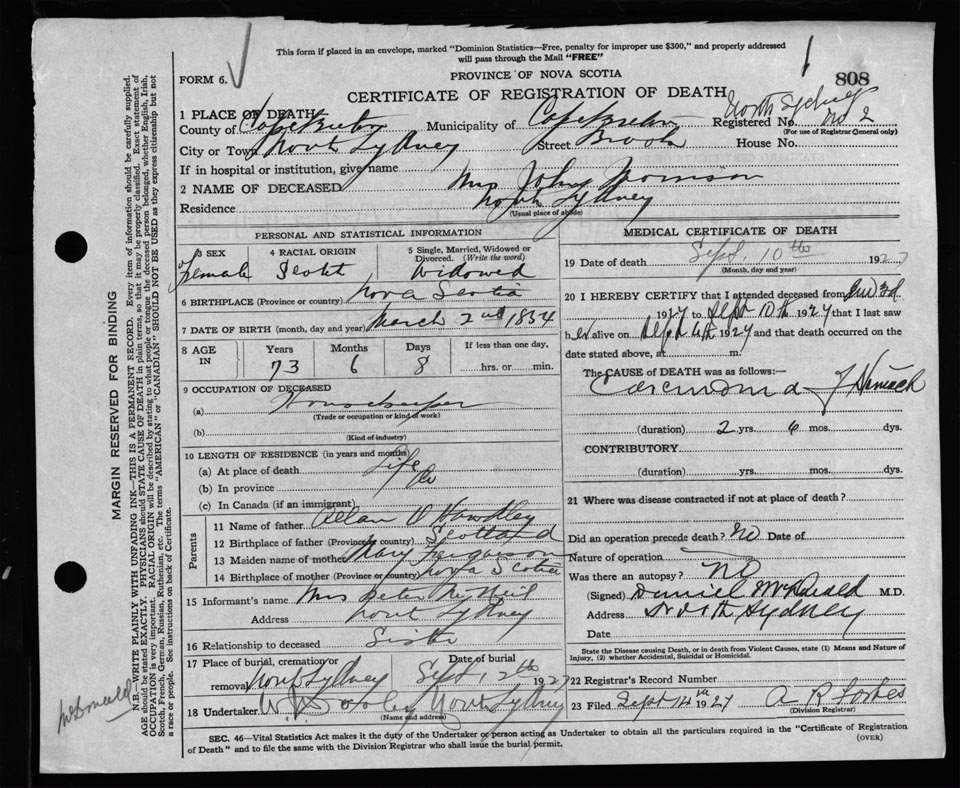 This form if placed in an envelope, marked "Dominion Statistics—Free, penalty for improper use $300," and properly addressed
will pass through the Mail "FREE"
FORM 6.
PROVINCE OF NOVA SCOTIA
808
CERTIFICATE OF REGISTRATION OF DEATH
North Sydney
1 PLACE OF DEATH
County of Cape Breton Municipality of Cape Breton Registered No. 2
(For use of Registrar General only)
City or Town North Sydney Street Brook House No.
If in hospital or institution, give name
2 NAME OF DECEASED Mrs John Morrison
Residence North Sydney
(Usual place of abode)
PERSONAL AND STATISTICAL INFORMATION
3 SEX 4 RACIAL ORIGIN 5 Single, Married, Widowed or Divorced. (Write the word)
Female Scotch Widowed
6 BIRTHPLACE (Province or country) Nova Scotia
7 DATE OF BIRTH (month, day and year) March 2nd 1854
8 AGE IN Years Months Days If less than one day,
73 6 8 hrs. or min.
9 OCCUPATION OF DECEASED
(a) Housekeeper
(Trade or occupation or kind of work)
(b)
(Kind of industry)
10 LENGTH OF RESIDENCE (in years and months)
(a) At place of death Life
(b) In province Do
(c) In Canada (if an immigrant)
Parents
11 Name of father Allan
12 Birthplace of father (Province or country) Scotland
13 Maiden name of mother Mary Ferguson
14 Birthplace of mother (Province or country) Nova Scotia
15 Informant's name Mrs Peter McNeil
Address North Sydney
16 Relationship to deceased Sister
17 Place of burial, cremation or removal North Sydney Date of burial Sept 12th 1927
18 Undertaker North Sydney
(Name and address)
MEDICAL CERTIFICATE OF DEATH
19 Date of death Sept. 10th 1927
(Month, day and year)
20 I HEREBY CERTIFY that I attended deceased from 3d
1927 to Sept 10th 1927 that I last saw
her alive on Sept 1927 and that death occurred on the
date stated above, at m.
The CAUSE of DEATH was as follows:—
Carcinoma of Stomach
(duration) 2 yrs. 6 mos. dys.
CONTRIBUTORY
(duration) yrs. mos. dys.
21 Where was disease contracted if not at place of death?
Did an operation precede death? No Date of
Nature of operation
Was there an autopsy? No
(Signed) Daniel McDonald M.D.
Address North Sydney
Date
State the Disease causing Death, or in death from Violent Causes, state (1) Means and Nature of
Injury, (2) whether Accidental, Suicidal or Homicidal.
22 Registrar's Record Number
23 Filed Sept 14th 1927 A R Forbes
(Division Registrar)
SEC. 46—Vital Statistics Act makes it the duty of the Undertaker or person acting as Undertaker to obtain all the particulars required in the "Certificate of Registration
of Death" and to file same with the Division Registrar who shall issue the burial permit.
(OVER)
MARGIN RESERVED FOR BINDING
N.B.—WRITE PLAINLY WITH UNFADING INK—THIS IS A PERMANENT RECORD. Every item of information should be carefully supplied.
AGE should be stated EXACTLY. PHYSICIANS should STATE CAUSE OF DEATH in plain terms, so that it may be properly classified. Exact statement of
OCCUPATION is very important. RACIAL ORIGIN will be described by stating to what people or tongue the deceased person belonged, whether English, Irish,
Scotch, French, German, Russian, Ruthenian, etc. The terms "AMERICAN" or "CANADIAN" SHOULD NOT BE USED as they express citizenship but not
a race or people. See instructions on back of Certificate.
McDonald